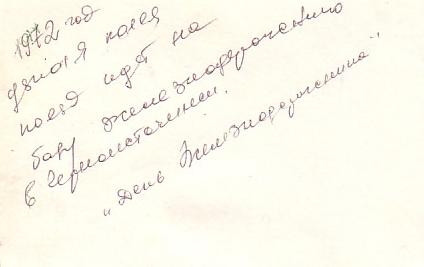 1972 год
узкая колея
поезд идёт на
базу железнодорожную
в Черноисточинск.
"День Железнодорожника"